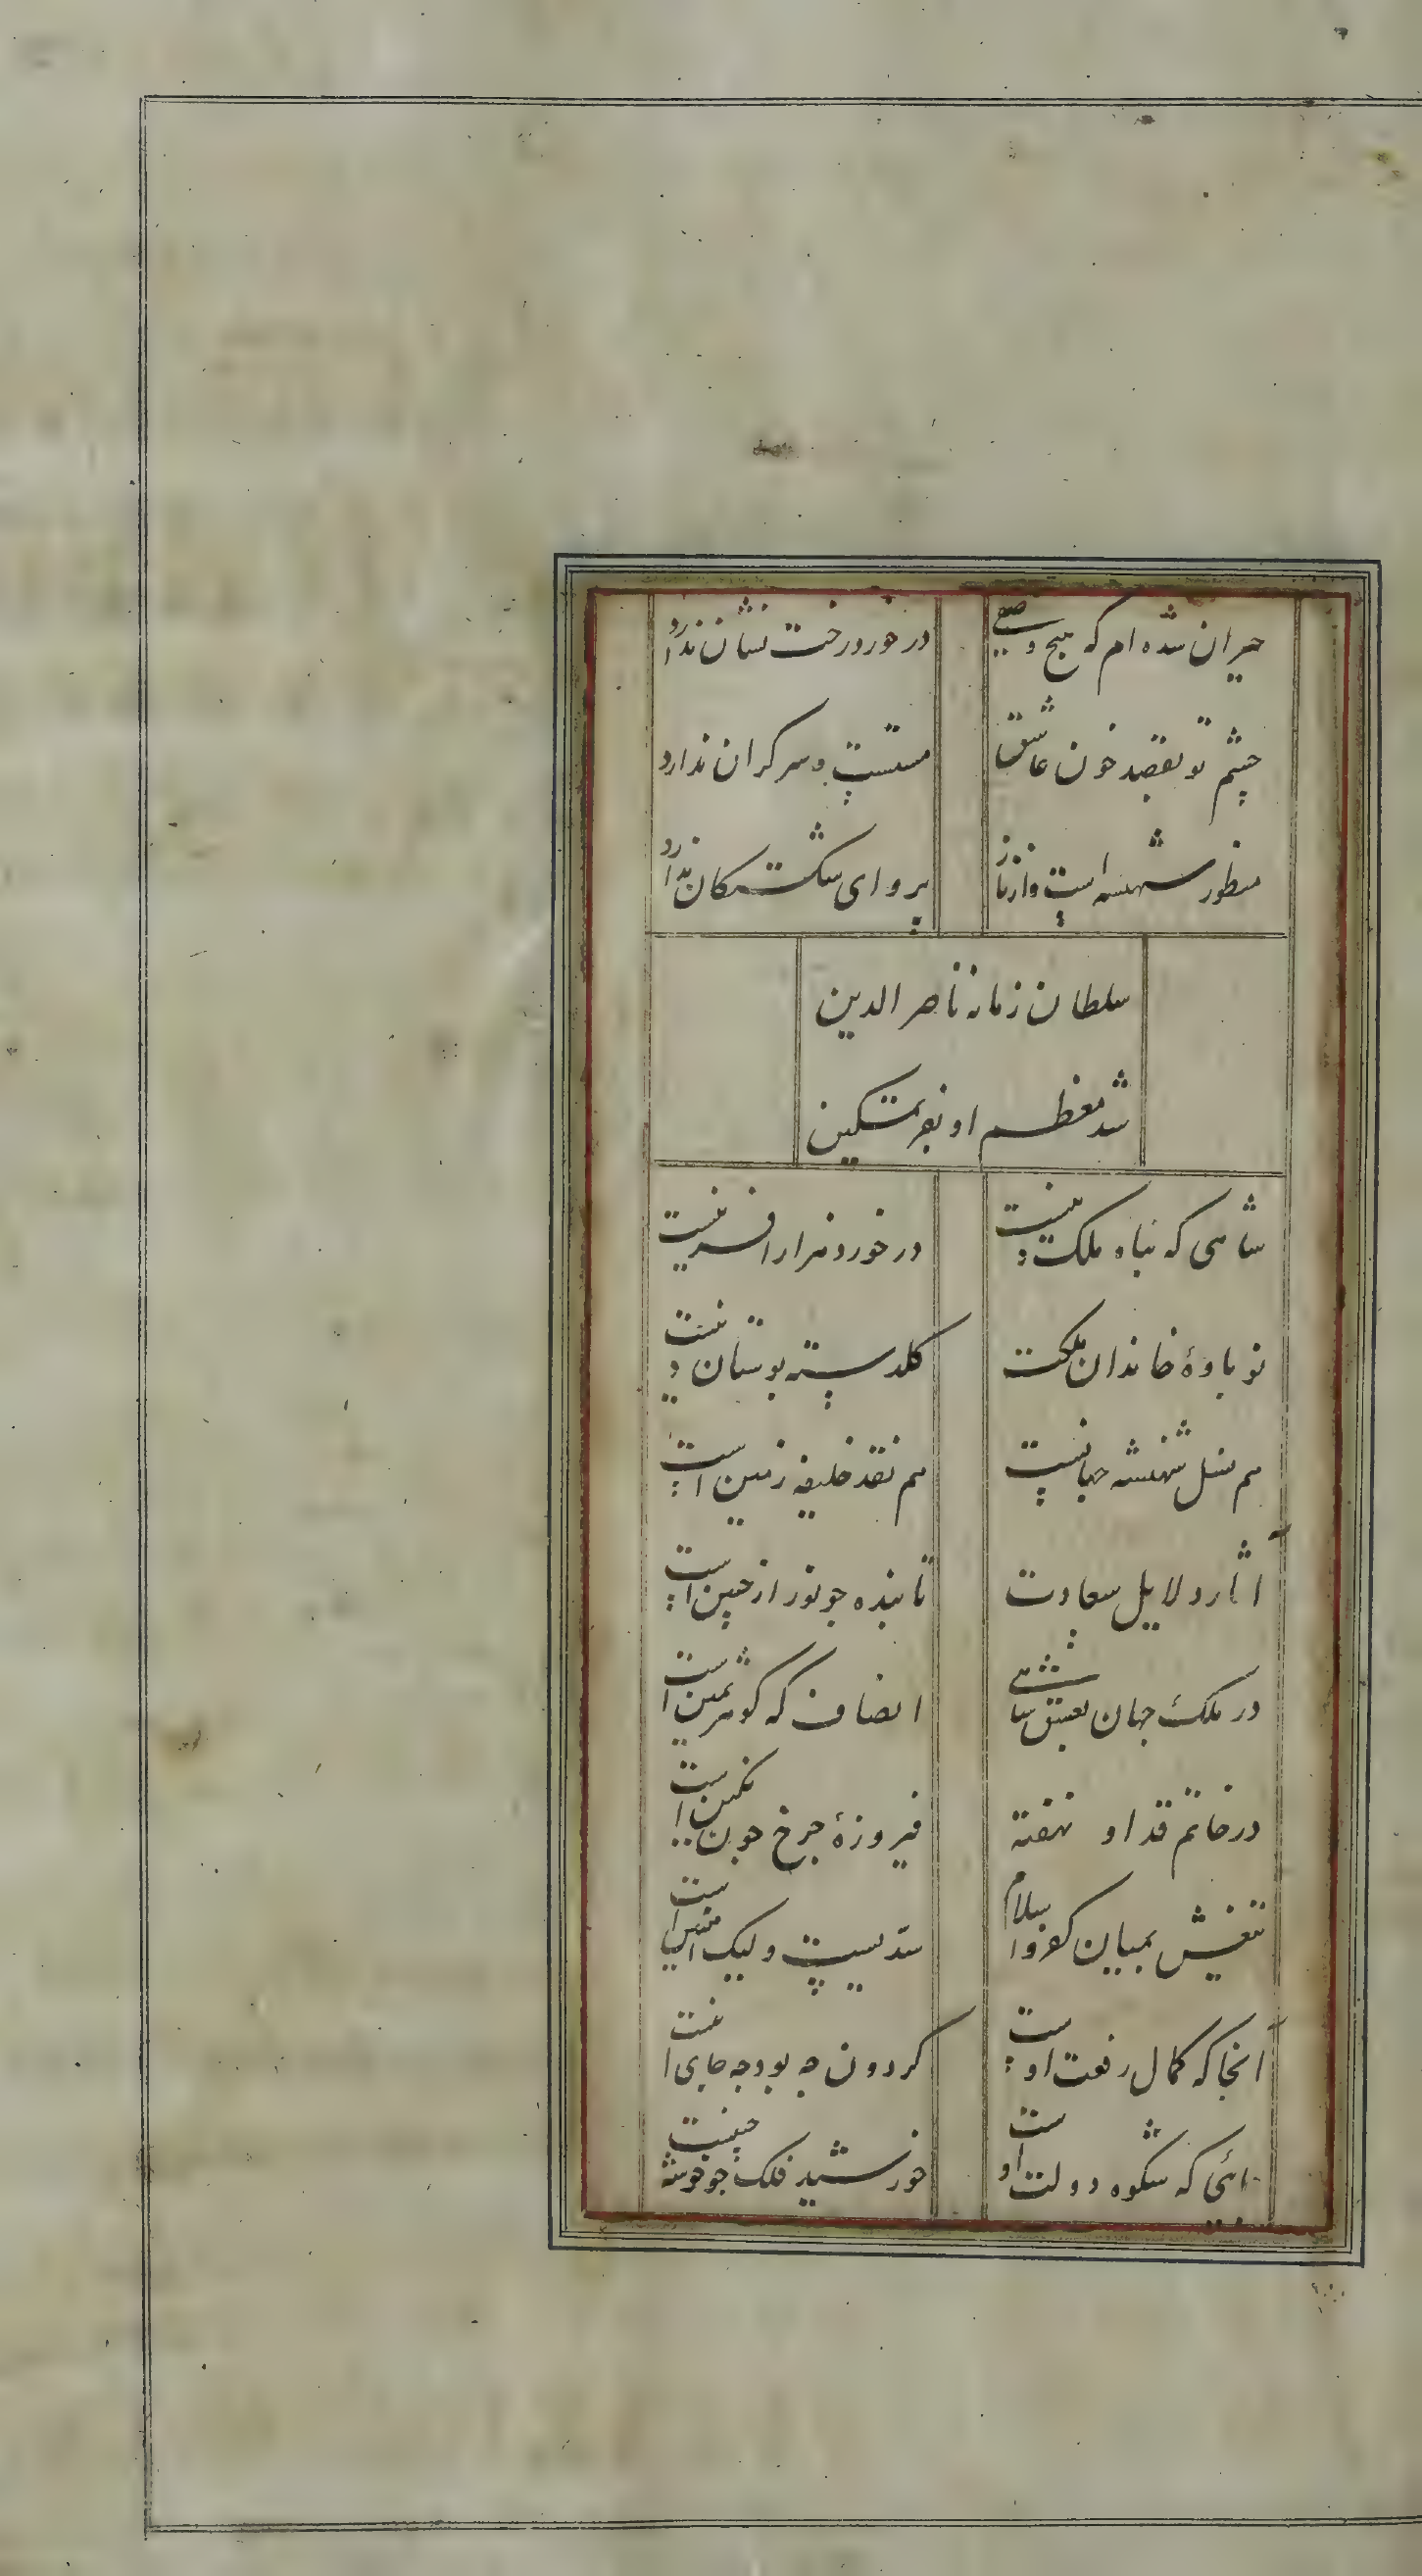 حیران شده ام که هیچ وصفی در خورد رخت نشان ندارد
چشم تو بقصد خون عاشق مستست و سر کران ندارد
منظور شهنشه است و از ناز پروای شکستکان ندارد
سلطان زمانه ناصر الدین
شد معظم او بفر تمکین
شاهی که پناه ملک و دینست در خورد هزار آفرینست
نو باوهٔ خاندان ملکت کلدسته بوستان دینست
هم نسل شهنشه جهانست هم نقد خلیفه زمین است
آثار و لایل سعادت تابنده جو نور از جبین است
در ملک جهان بعیش شاهی انصاف که کوهر ثمین است
در خاتم قد او نهفته فیروزهٔ جرخ جون نکین است
تیغش بمیان کفر و اسلام سدیست ولیک آتشین است
آنجا که کمال رفعت اوست کردون جه بود جه جای اینست
جائی که شکوه دولت اوست خورشید فلک جو خوشه چینست